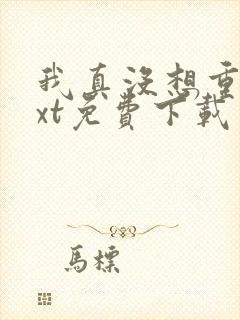 我真没想重
xt免費下載
馬標